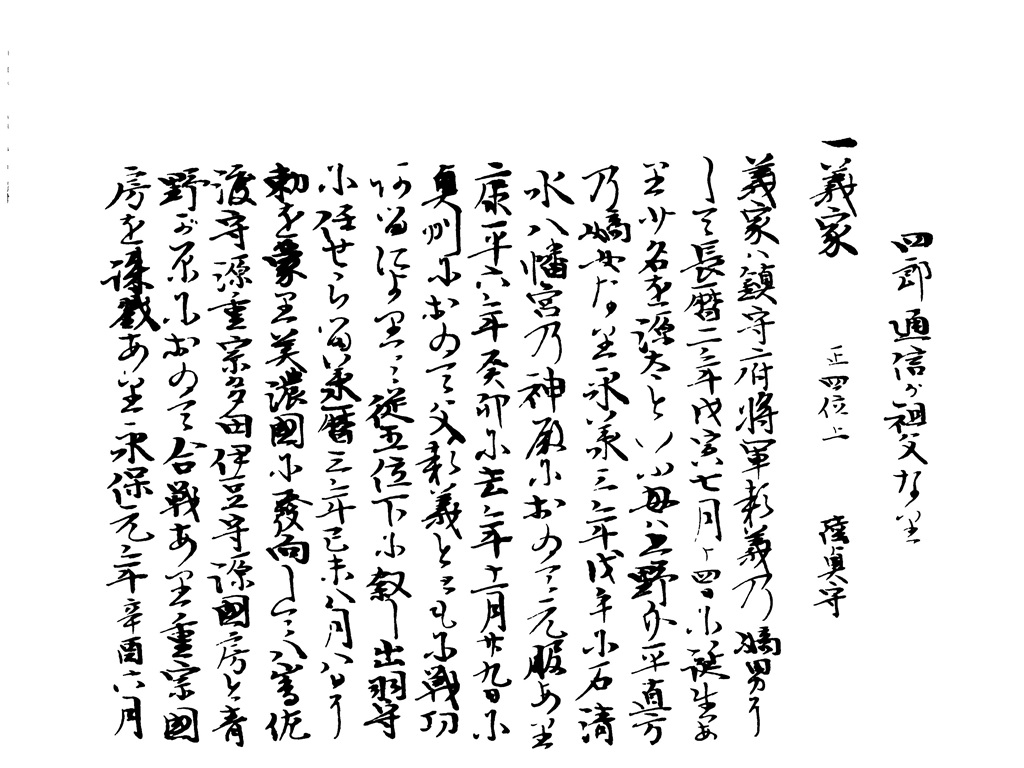 四郎通信が祖父なり
一義家 正四位上 陸奥守
義家ハ鎮守府将軍頼義乃嫡男に
して長暦二年戊寅七月十四日に誕生あ
り少名を源太といふ母ハ上野介平直方
乃嫡女なり永承三年戊子に石清
水八幡宮乃神殿においてミ元服あり
康平六年癸卯に去年十二月廿九日に
奥州において父頼義とともに戦功
ある によりて従五位下に叙し出羽守
に任せらる 承暦三年己未八月八日に
勅を蒙り美濃國に發向して八嶌佐
渡守源重宗多田伊豆守源國房と青
野が原において合戦あり重宗國
房を誅戮あり永保元年辛酉六月